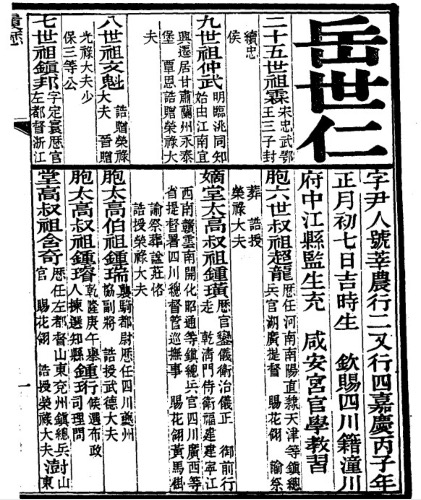 岳世仁
字尹人號莘農行二又行四嘉慶丙子年
正月初七日吉時生 欽賜四川籍潼川
府中江縣監生充 咸安宮官學教習
二十五世祖霖 宋忠武鄂
王三子封
續忠
侯
九世祖仲武 明臨洮同知
始由江南宜
興遷居甘肅蘭州永泰
堡 覃恩誥贈榮祿大
夫
八世祖文魁 誥贈榮祿
大夫 晉贈
光祿大夫少
保三等公
七世祖鎮邦 字定寰歷官
左都督浙江
胞六世叔祖超龍 歷任河南南陽直隸天津等鎮總
兵官湖廣提督 賜花翎 諭祭
葬 誥授
榮祿大夫
嫡堂太高叔祖鍾璜 歷官鑾儀衛治儀正 御前行
走 乾清門侍衛福建建寧江
西南贛雲南開化昭通等鎮總兵官四川廣西等
省提督署四川總督管巡撫事 賜花翎黃馬褂
諭祭葬諡莊恪
誥授榮祿大夫
胞太高伯祖鍾瑞 襲騎都尉歷任四川夔州
協副將 誥授武德大夫
胞太高叔祖鍾璿 乾隆庚午舉
人揀選知縣 候選布政
司理問
堂高叔祖含奇 歷任左都督山東兗州鎮總兵
官 賜花翎 誥授榮祿大夫